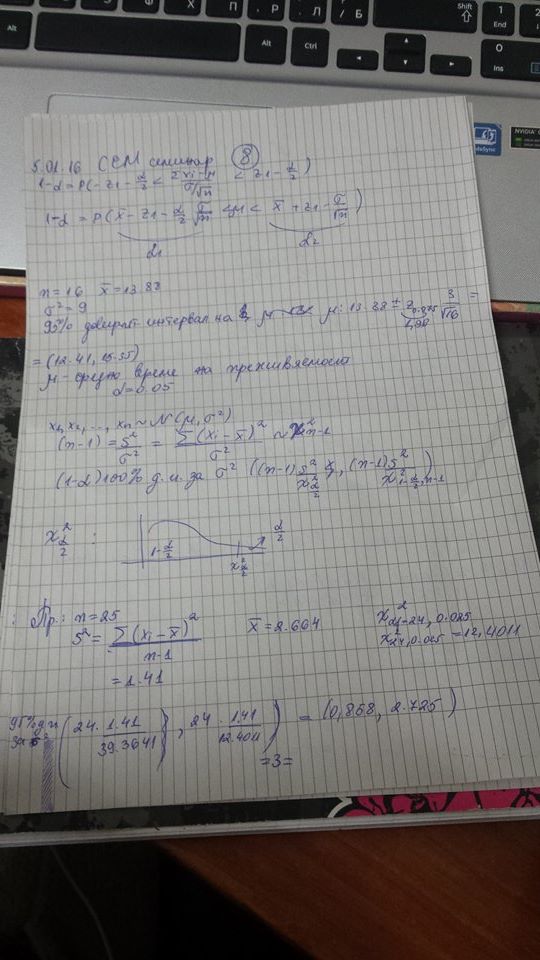 Shift
Alt
Alt
Ctrl
End
Ins
NVIDIA
5.01.16 СЕМ семинар 8
1-α = P(-z1-α/2 < Σxi-μ / σ/√n < z1-α/2)
1-α = P(x̄ - z1-α/2 σ/√n < μ < x̄ + z1- σ/√n)
d1 d2
n=16 x̄=13.88
σ²=9
95% доверит интервал на μ: 13.88 ± z0.975 3/√16 =
1,96
= (12.41, 15.35)
μ - средно време на преживяемост
α=0.05
x1, x2, ..., xn ~ N(μ, σ²)
(n-1) = s²/σ² = Σ(xi - x̄)²/σ² ~ χ²n-1
(1-α)100% д.и. за σ² ((n-1)s²/χ²α/2, (n-1)s²/χ²1-α/2, n-1)
χ²α/2 :
1-α/2
χ²α/2
α/2
: Пр.: n=25
s² = Σ(xi - x̄)² / n-1
x̄=2.664
= 1.41
χ²24, 0.025 = 12,4011
95% д.и
за σ²
(24. 1.41 / 39.3641, 24. 1.41 / 12.4011) = (0,858, 2.725)
=3=